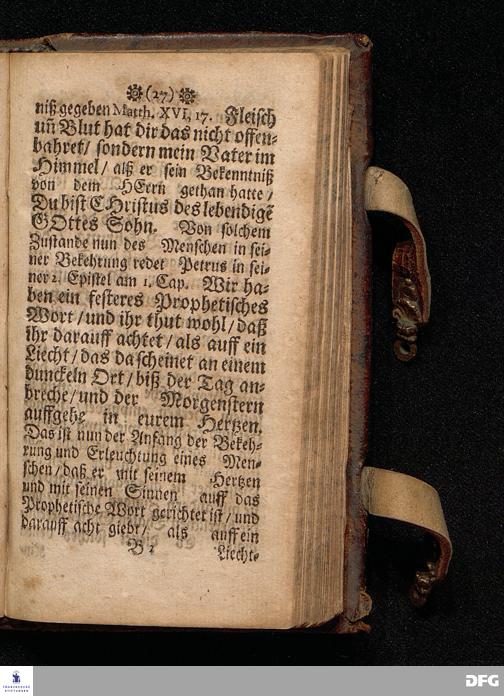 ❁(27)❁
niß gegeben Matth. XVI, 17. Fleisch
un̄ Blut hat dir das nicht offen⸗
bahret/ sondern mein Vater im
Himmel/ alß er sein Bekenntniß
von dem HErrn gethan hatte/
Du bist CHristus des lebendigē
GOttes Sohn. Von solchem
Zustande nun des Menschen in sei⸗
ner Bekehrung redet Petrus in sei⸗
ner 2. Epistel am 1. Cap. Wir ha⸗
ben ein festeres Prophetisches
Wort/und ihr thut wohl/daß
ihr darauff achtet/als auff ein
Liecht/das da scheinet an einem
dunckeln Ort/biß der Tag an⸗
breche/und der Morgenstern
auffgehe in eurem Hertzen.
Das ist nun der Anfang der Bekeh⸗
rung und Erleuchtung eines Men⸗
schen/daß er mit seinem Hertzen
und mit seinen Sinnen auff das
Prophetische Wort gerichtet ist/und
darauff acht giebt/ als auff ein
B 2 Liecht⸗
FRANCKESCHE
STIFTUNGEN
DFG